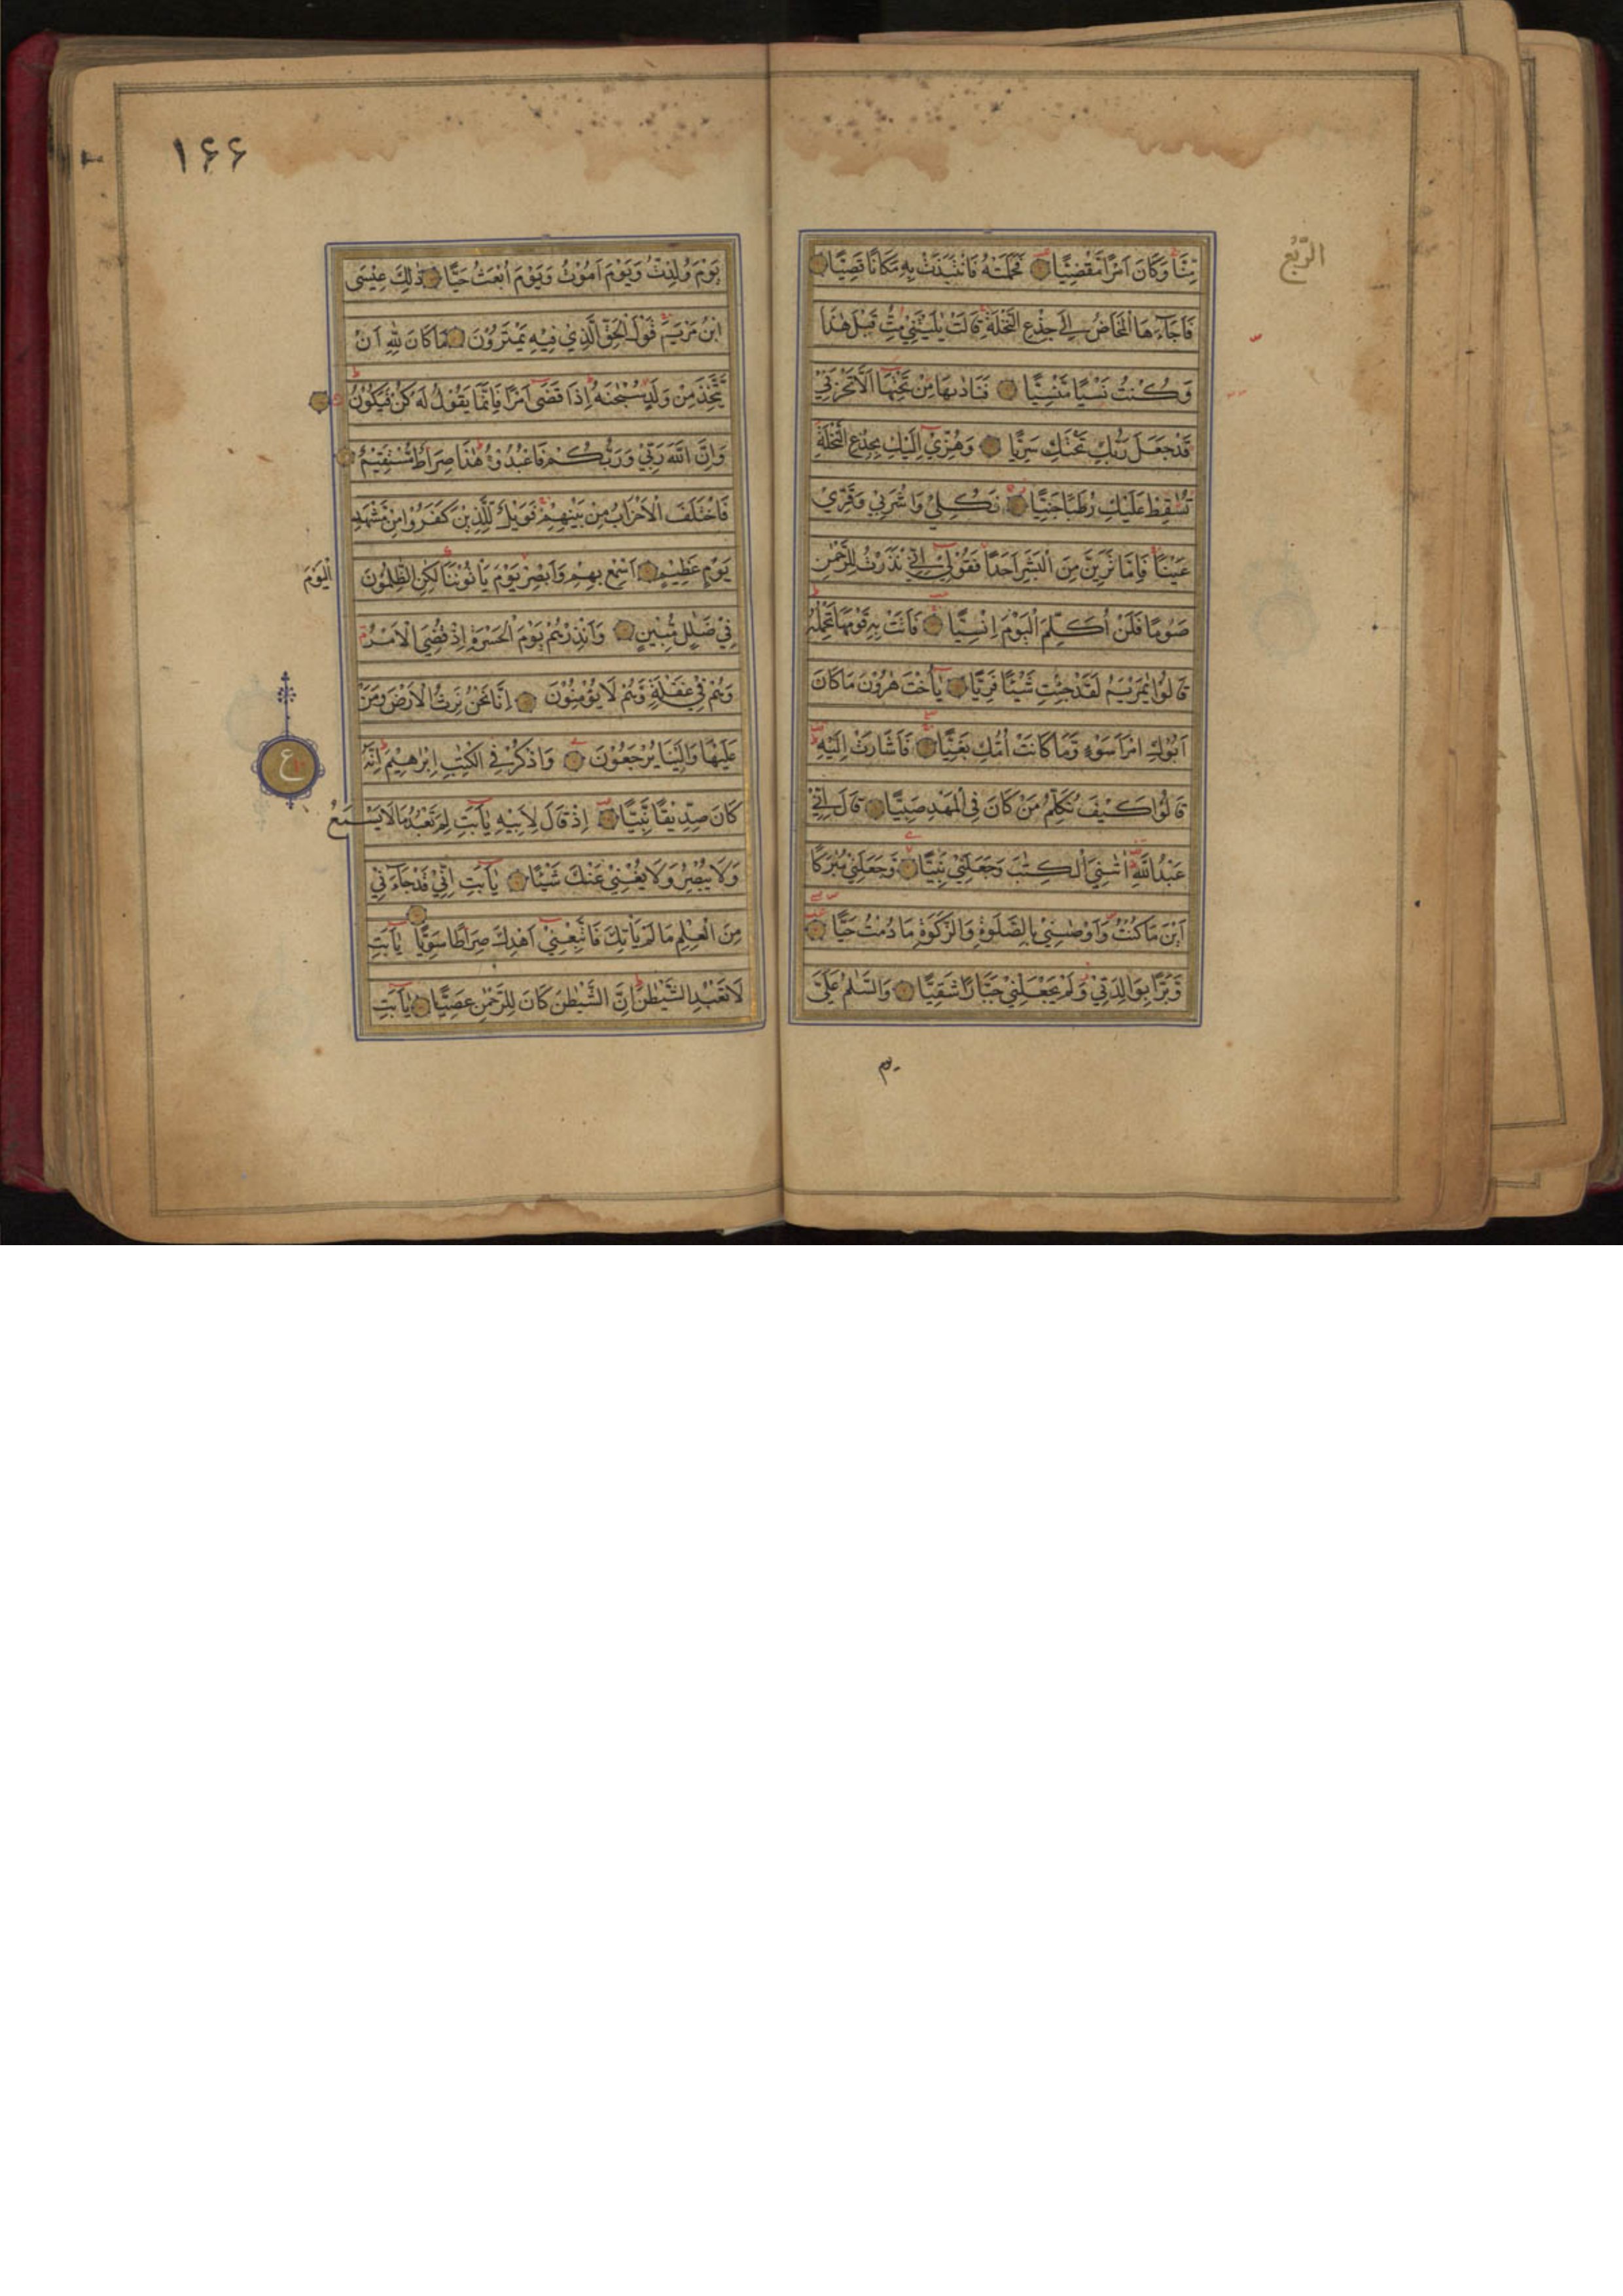 الرُّبع
مِّنَّا وَكَانَ اَمْرًا مَّقْضِيًّا فَحَمَلَتْهُ فَانْتَبَذَتْ بِهٖ مَكَانًا قَصِيًّا
فَاَجَآءَهَا الْمَخَاضُ اِلٰى جِذْعِ النَّخْلَةِ قَالَتْ يٰلَيْتَنِيْ مِتُّ قَبْلَ هٰذَا
وَكُنْتُ نَسْيًا مَّنْسِيًّا فَنَادٰىهَا مِنْ تَحْتِهَا اَلَّا تَحْزَنِيْ
قَدْ جَعَلَ رَبُّكِ تَحْتَكِ سَرِيًّا وَهُزِّيْ اِلَيْكِ بِجِذْعِ النَّخْلَةِ
تُسٰقِطْ عَلَيْكِ رُطَبًا جَنِيًّا فَكُلِيْ وَاشْرَبِيْ وَقَرِّيْ
عَيْنًا فَاِمَّا تَرَيِنَّ مِنَ الْبَشَرِ اَحَدًا فَقُوْلِيْ اِنِّيْ نَذَرْتُ لِلرَّحْمٰنِ
صَوْمًا فَلَنْ اُكَلِّمَ الْيَوْمَ اِنْسِيًّا فَاَتَتْ بِهٖ قَوْمَهَا تَحْمِلُهٗ
قَالُوْا يٰمَرْيَمُ لَقَدْ جِئْتِ شَيْئًا فَرِيًّا يٰٓاُخْتَ هٰرُوْنَ مَا كَانَ
اَبُوْكِ امْرَاَ سَوْءٍ وَّمَا كَانَتْ اُمُّكِ بَغِيًّا فَاَشَارَتْ اِلَيْهِ
قَالُوْا كَيْفَ نُكَلِّمُ مَنْ كَانَ فِي الْمَهْدِ صَبِيًّا قَالَ اِنِّيْ
عَبْدُ اللّٰهِ اٰتٰىنِيَ الْكِتٰبَ وَجَعَلَنِيْ نَبِيًّا وَّجَعَلَنِيْ مُبٰرَكًا
اَيْنَ مَا كُنْتُ وَاَوْصٰىنِيْ بِالصَّلٰوةِ وَالزَّكٰوةِ مَا دُمْتُ حَيًّا
وَّبَرًّا بِوَالِدَتِيْ وَلَمْ يَجْعَلْنِيْ جَبَّارًا شَقِيًّا وَالسَّلٰمُ عَلَيَّ
يوم
۱۶۶
يَوْمَ وُلِدْتُّ وَيَوْمَ اَمُوْتُ وَيَوْمَ اُبْعَثُ حَيًّا ذٰلِكَ عِيْسَى
ابْنُ مَرْيَمَ قَوْلَ الْحَقِّ الَّذِيْ فِيْهِ يَمْتَرُوْنَ مَا كَانَ لِلّٰهِ اَنْ
يَّتَّخِذَ مِنْ وَلَدٍ سُبْحٰنَهٗ اِذَا قَضٰٓى اَمْرًا فَاِنَّمَا يَقُوْلُ لَهٗ كُنْ فَيَكُوْنُ
وَاِنَّ اللّٰهَ رَبِّيْ وَرَبُّكُمْ فَاعْبُدُوْهُ هٰذَا صِرَاطٌ مُّسْتَقِيْمٌ
فَاخْتَلَفَ الْاَحْزَابُ مِنْ بَيْنِهِمْ فَوَيْلٌ لِّلَّذِيْنَ كَفَرُوْا مِنْ مَّشْهَدِ
يَوْمٍ عَظِيْمٍ اَسْمِعْ بِهِمْ وَاَبْصِرْ يَوْمَ يَاْتُوْنَنَا لٰكِنِ الظّٰلِمُوْنَ اليَوْمَ
فِيْ ضَلٰلٍ مُّبِيْنٍ وَاَنْذِرْهُمْ يَوْمَ الْحَسْرَةِ اِذْ قُضِيَ الْاَمْرُ
وَهُمْ فِيْ غَفْلَةٍ وَّهُمْ لَا يُؤْمِنُوْنَ اِنَّا نَحْنُ نَرِثُ الْاَرْضَ وَمَنْ
عَلَيْهَا وَاِلَيْنَا يُرْجَعُوْنَ وَاذْكُرْ فِي الْكِتٰبِ اِبْرٰهِيْمَ اِنَّهٗ
ع
كَانَ صِدِّيْقًا نَّبِيًّا اِذْ قَالَ لِاَبِيْهِ يٰٓاَبَتِ لِمَ تَعْبُدُ مَا لَا يَسْمَعُ
وَلَا يُبْصِرُ وَلَا يُغْنِيْ عَنْكَ شَيْئًا يٰٓاَبَتِ اِنِّيْ قَدْ جَآءَنِيْ
مِنَ الْعِلْمِ مَا لَمْ يَاْتِكَ فَاتَّبِعْنِيْٓ اَهْدِكَ صِرَاطًا سَوِيًّا يٰٓاَبَتِ
لَا تَعْبُدِ الشَّيْطٰنَ اِنَّ الشَّيْطٰنَ كَانَ لِلرَّحْمٰنِ عَصِيًّا يٰٓاَبَتِ